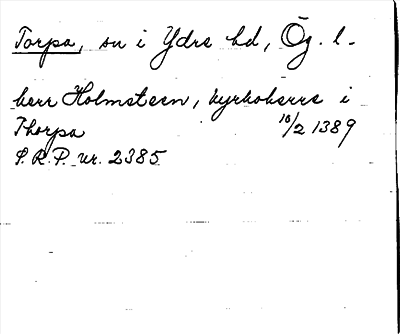 Torpa, sn i Ydre hd, Ög. l.
herr Holmsteen, kyrkoherre i
Thorpa 10/2 1389
S.R.P. nr. 2385